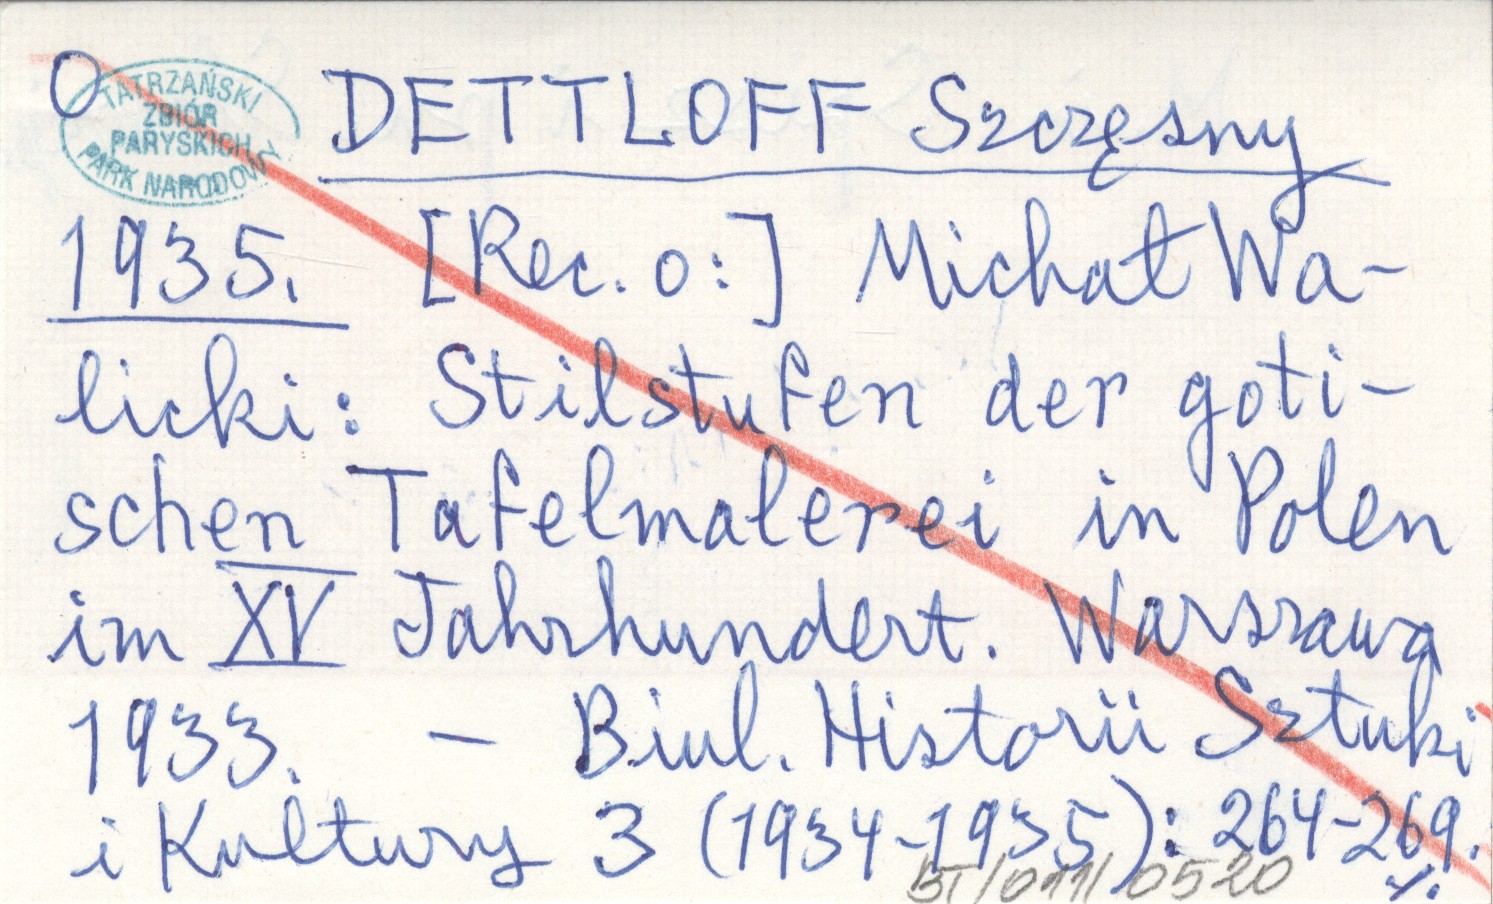 O
TATRZAŃSKI
ZBIÓR
PARYSKICH
PARK NARODOWY
DETTLOFF Szczęsny
1935. [Rec. o:] Michał Wa-
licki: Stilstufen der goti-
schen Tafelmalerei in Polen
im XV Jahrhundert. Warszawa
1933. - Biul. Historii Sztuki
i Kultury 3 (1934-1935): 264-269.
BT/011/0520